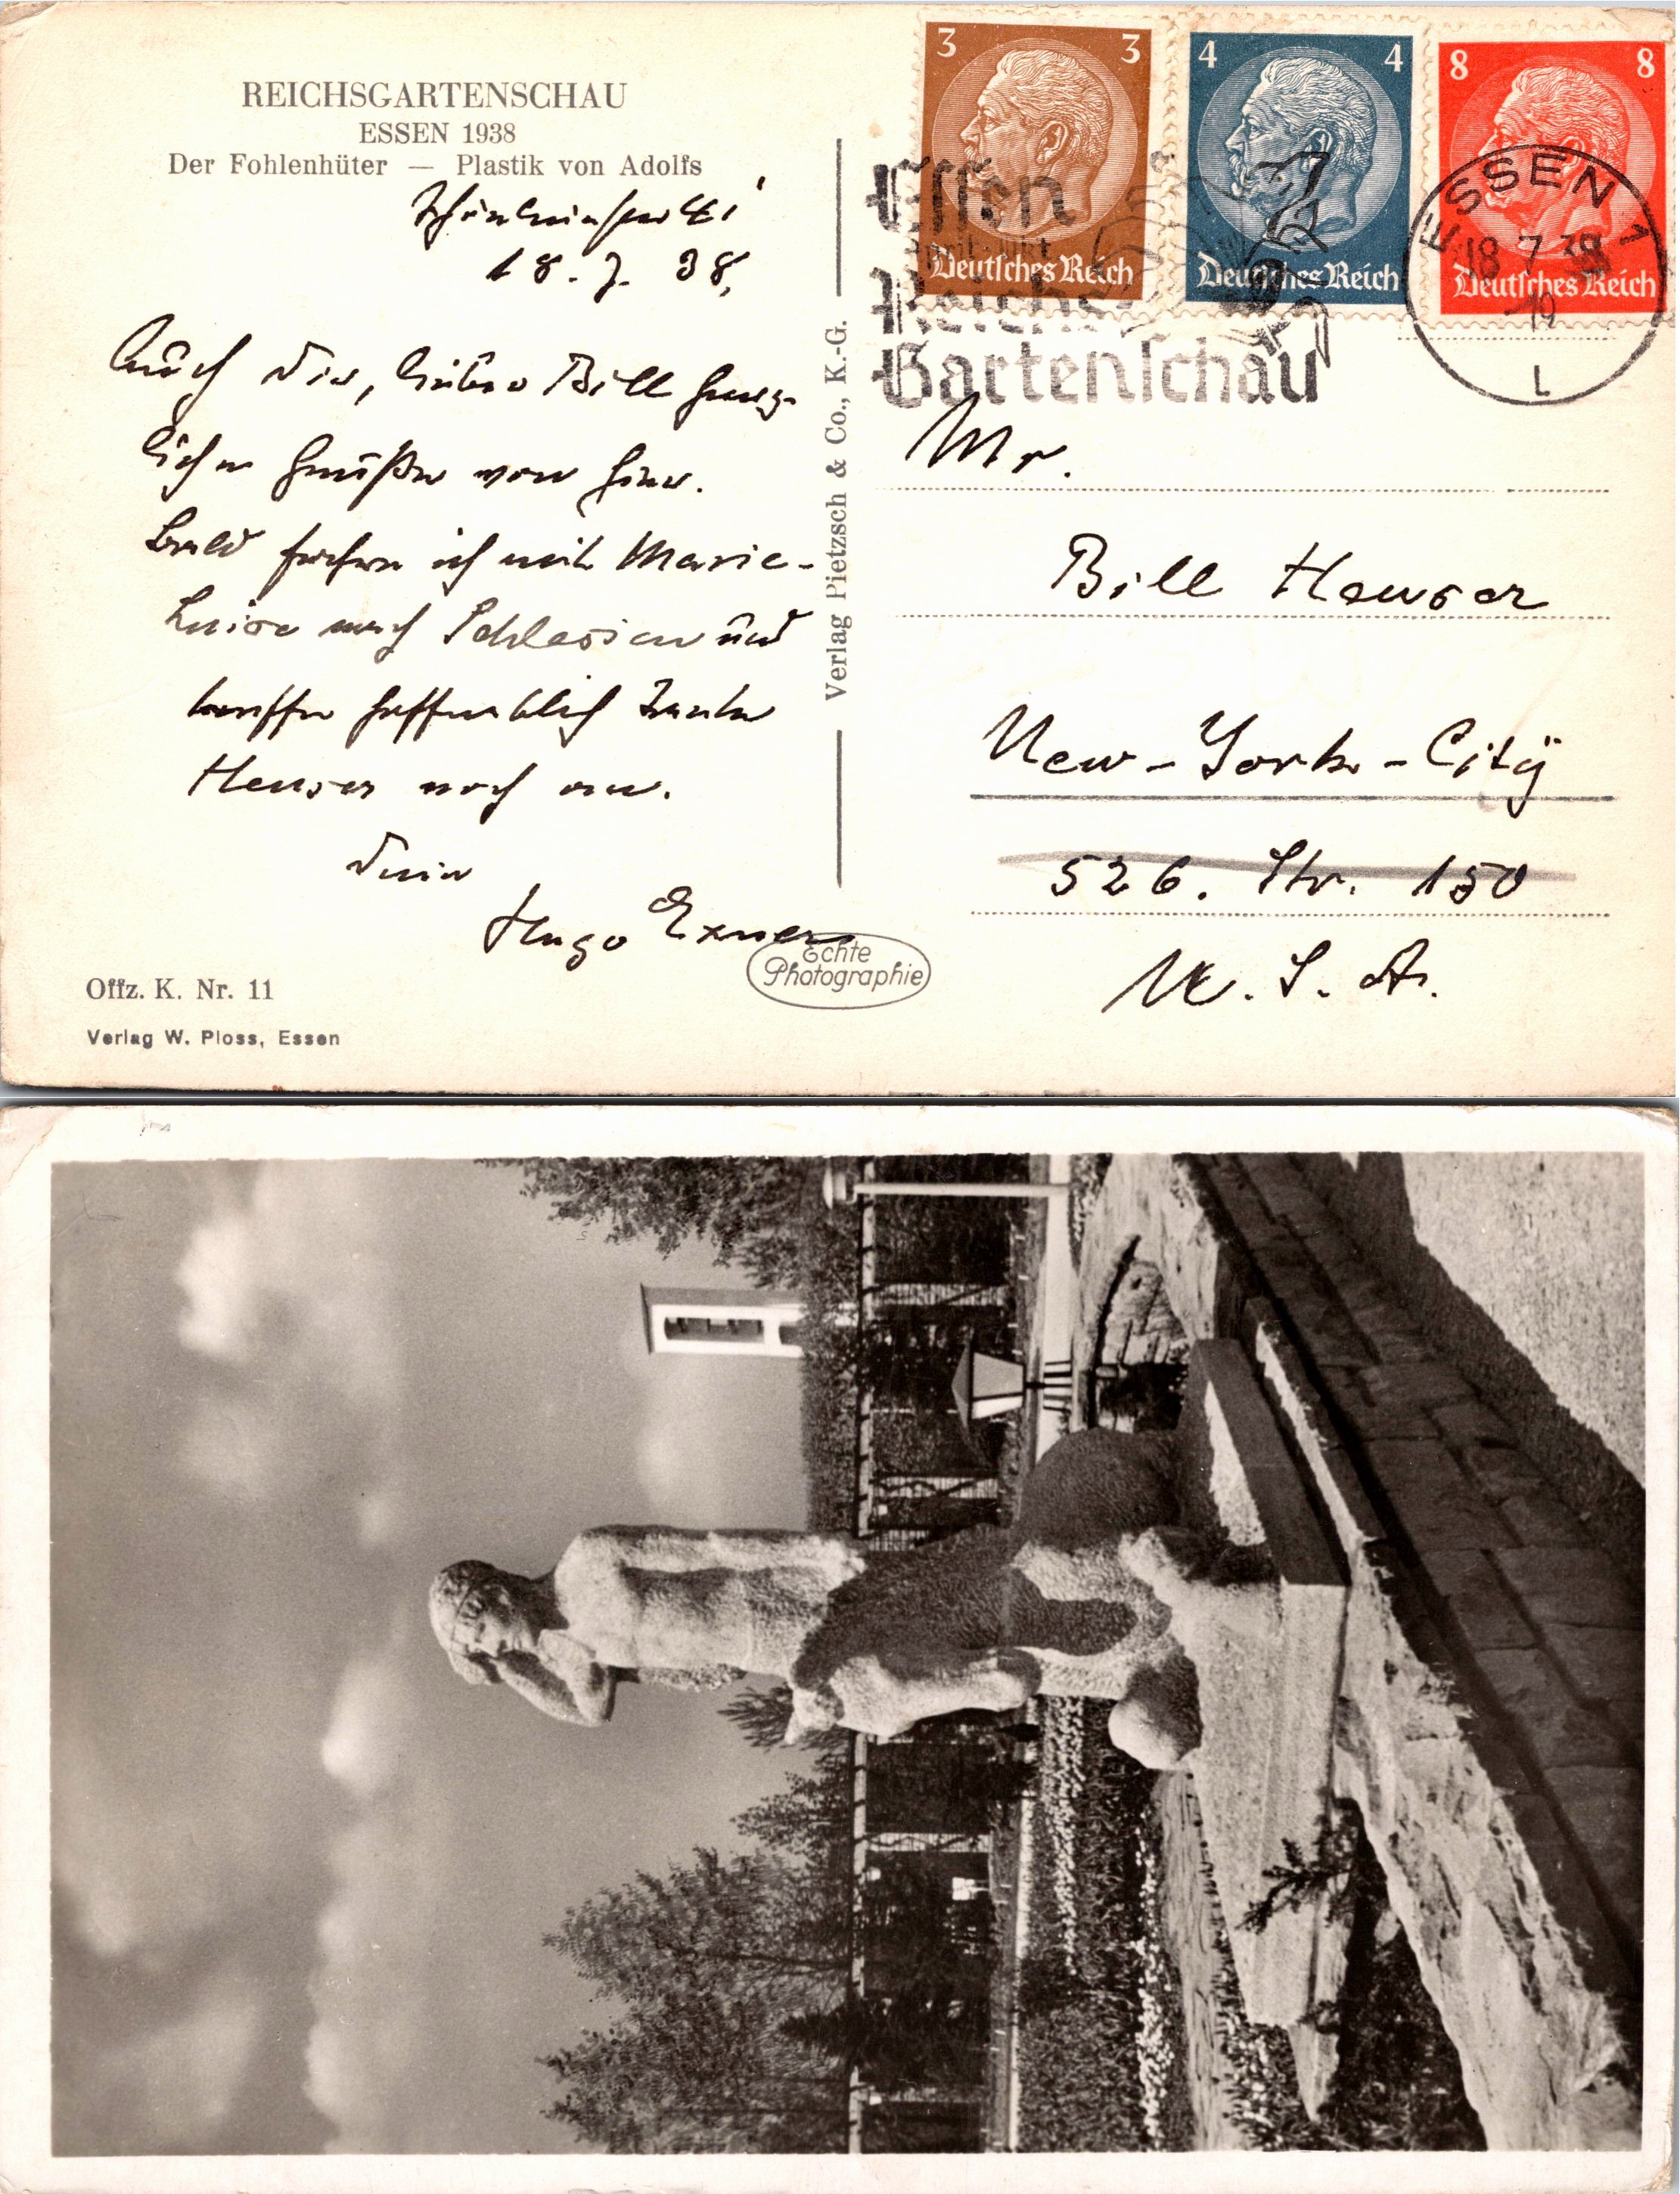 REICHSGARTENSCHAU
ESSEN 1938
Der Fohlenhüter — Plastik von Adolfs
18. 7. 38.
Auch Dir, lieber Bill herz-
liche Grüße von hier.
Bald fahre ich mit Marie-
Luise nach Schlesien und
treffe hoffentlich Tante
Heuser noch an.
Dein
Hugo Exner
Offz. K. Nr. 11
Verlag W. Ploss, Essen
Verlag Pietzsch & Co., K.-G.
Echte
Photographie
3 3
Deutsches Reich
4 4
Deutsches Reich
8 8
Deutsches Reich
Essen
Reichs
Gartenschau
ESSEN 1
18.7.38
-19
L
Mr.
Bill Heuser
New-York-City
526. Str. 150
U. S. A.